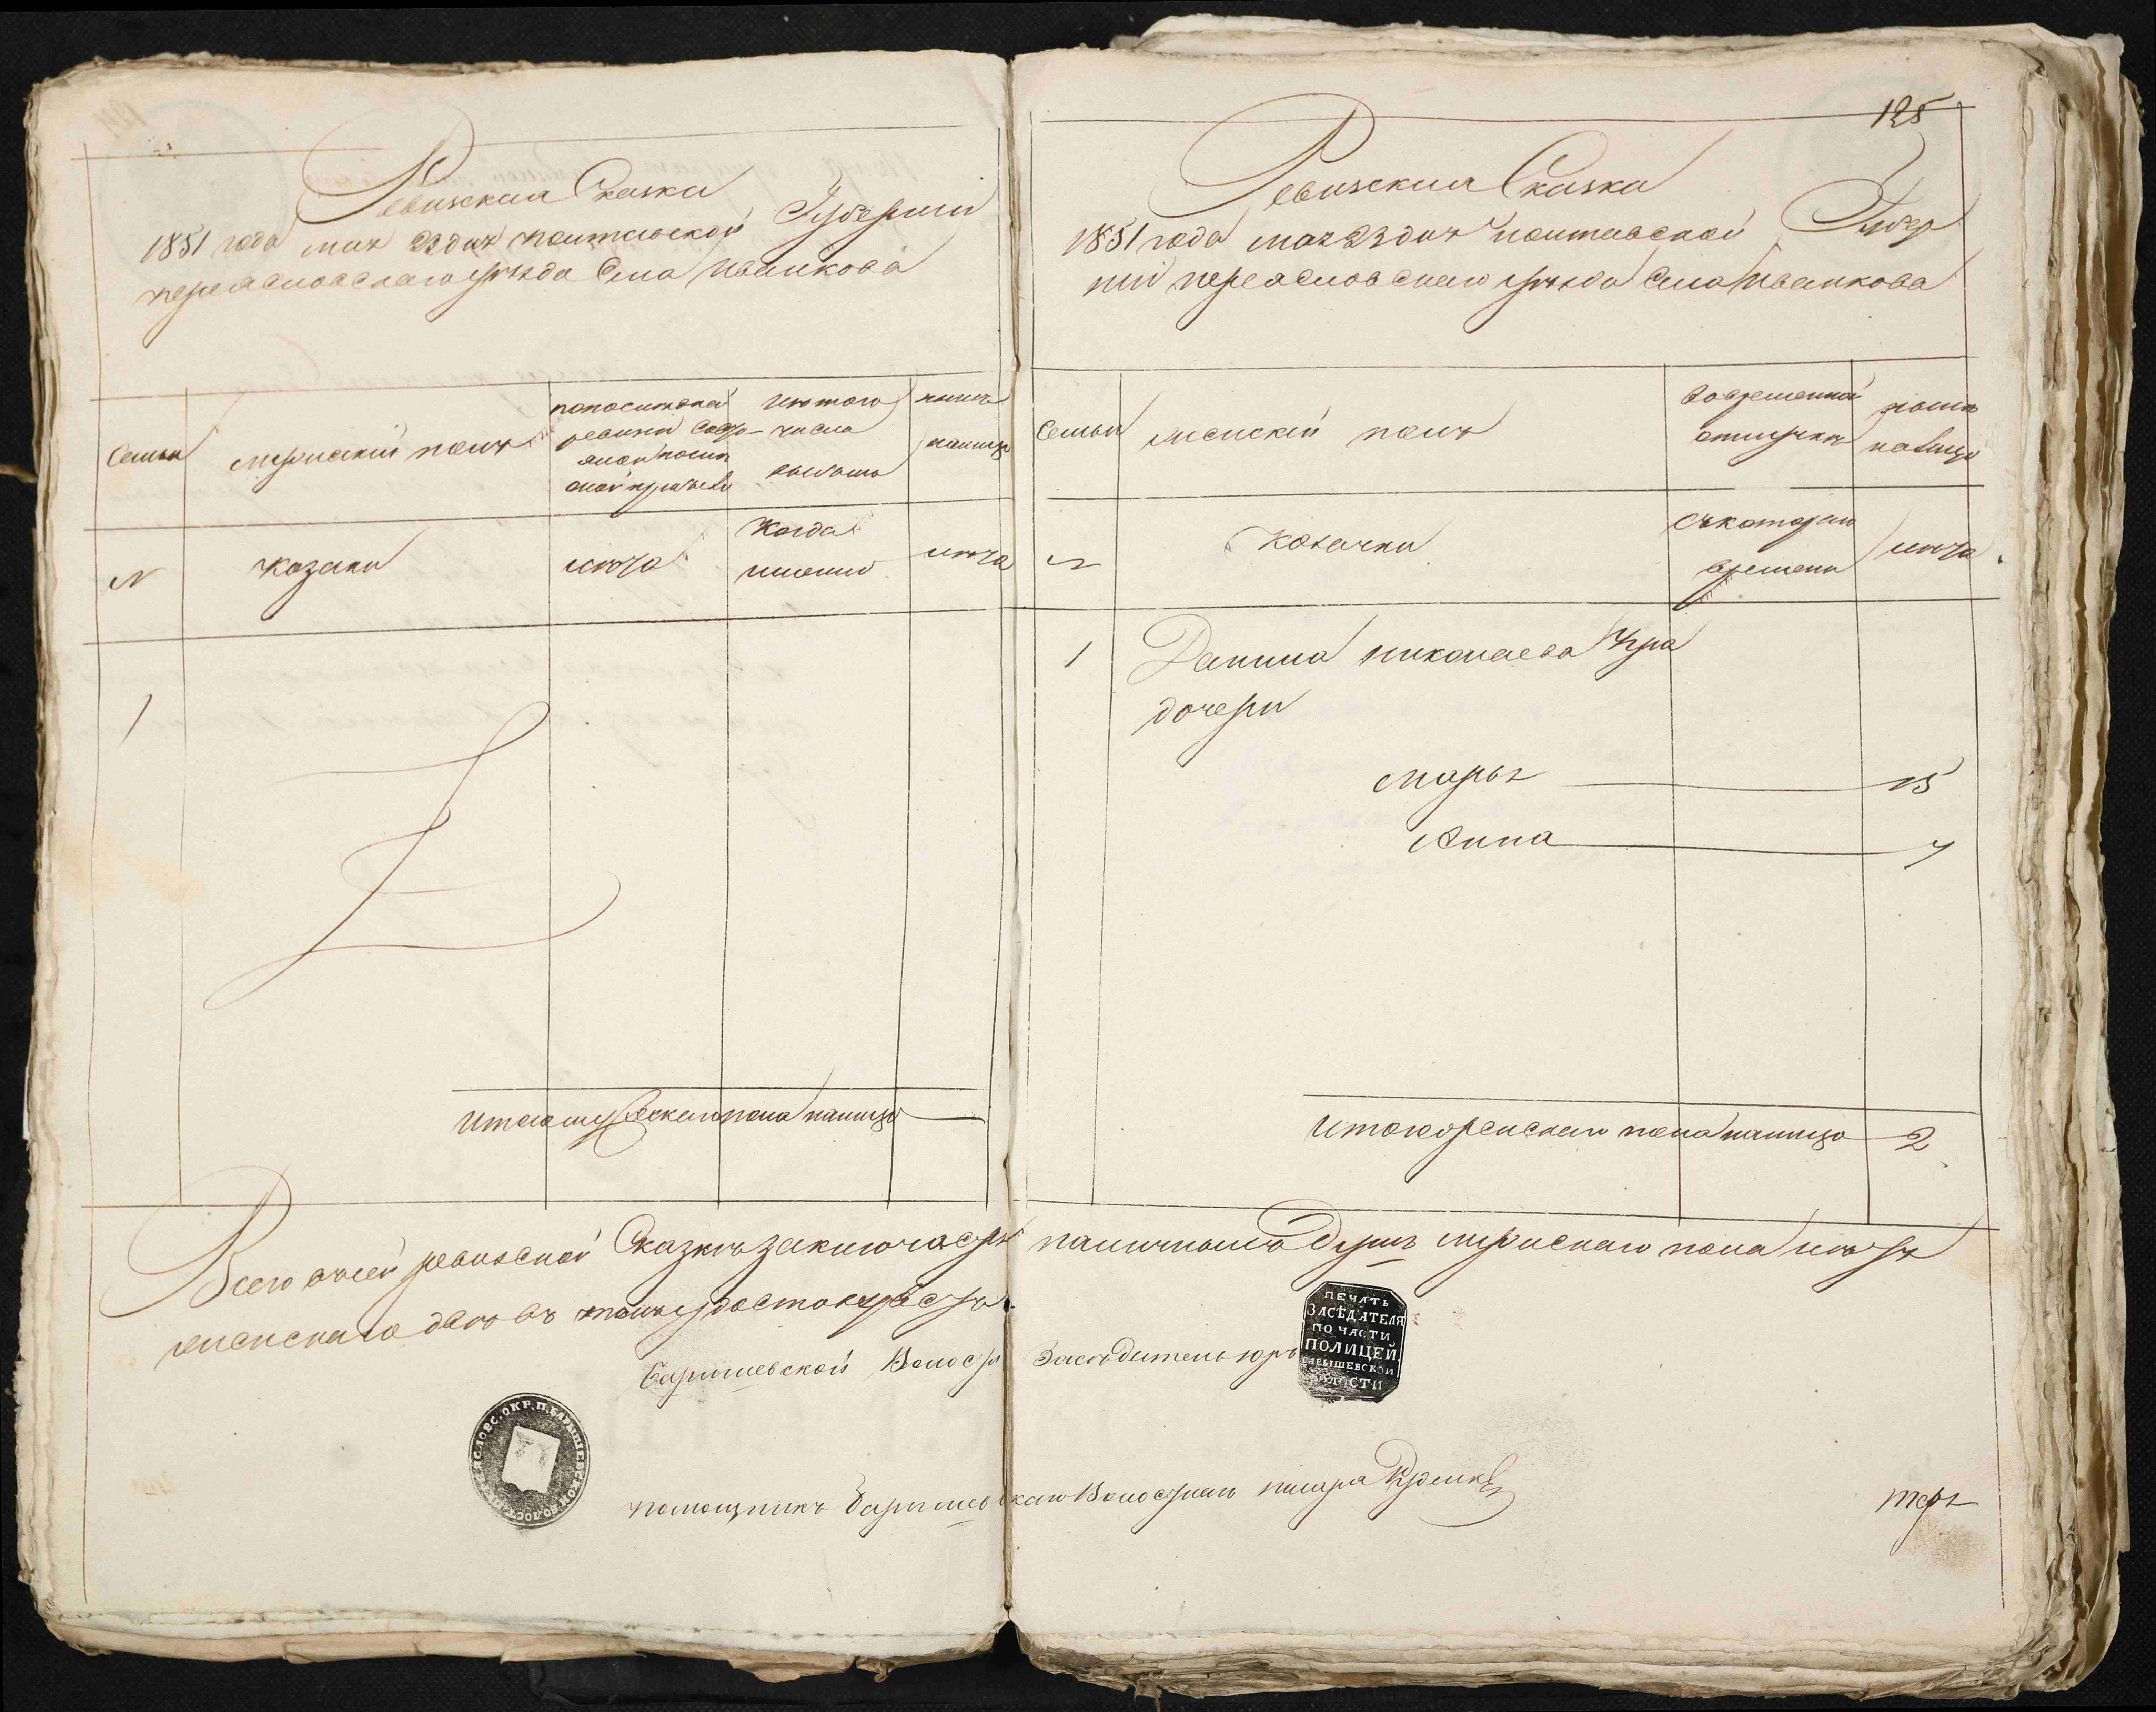 Ревизская Сказка
1851 года мая 23 дня полтавской Губернии
переясловского уезда Села Иванкова
Семьи
мужеский полъ
по последней
ревизии состо-
изъ того
числа
выбыло
ныне
налицо
№
казаки
лета
Когда
именно
лета
1
Итого мужеского пола налицо
125
Ревизская Сказка
1851 года мая 23 дня полтавской Губер
нии переясловского уезда Села Иванкова
Семьи
женский полъ
Во временной
отлучке
ныне
налицо
№
Козачки
съ котораго
времени
лета
1
Данила николаева
дочери
Марья 15
Анна 7
Итого женскаго пола налицо 2
Всего в сей ревизской Сказке заключается наличныхъ Душъ мужескаго пола нетъ
женскаго две въ томъ удостоверяется
Барышевской Волости Заседатель
ПЕЧАТЬ
ЗАСѢДАТЕЛЯ
ПО ЧАСТИ
ПОЛИЦЕЙ.
БАРЫШЕВСКОЙ
ВОЛОСТИ
помощникъ Барышевскаго Волостнаго писаря